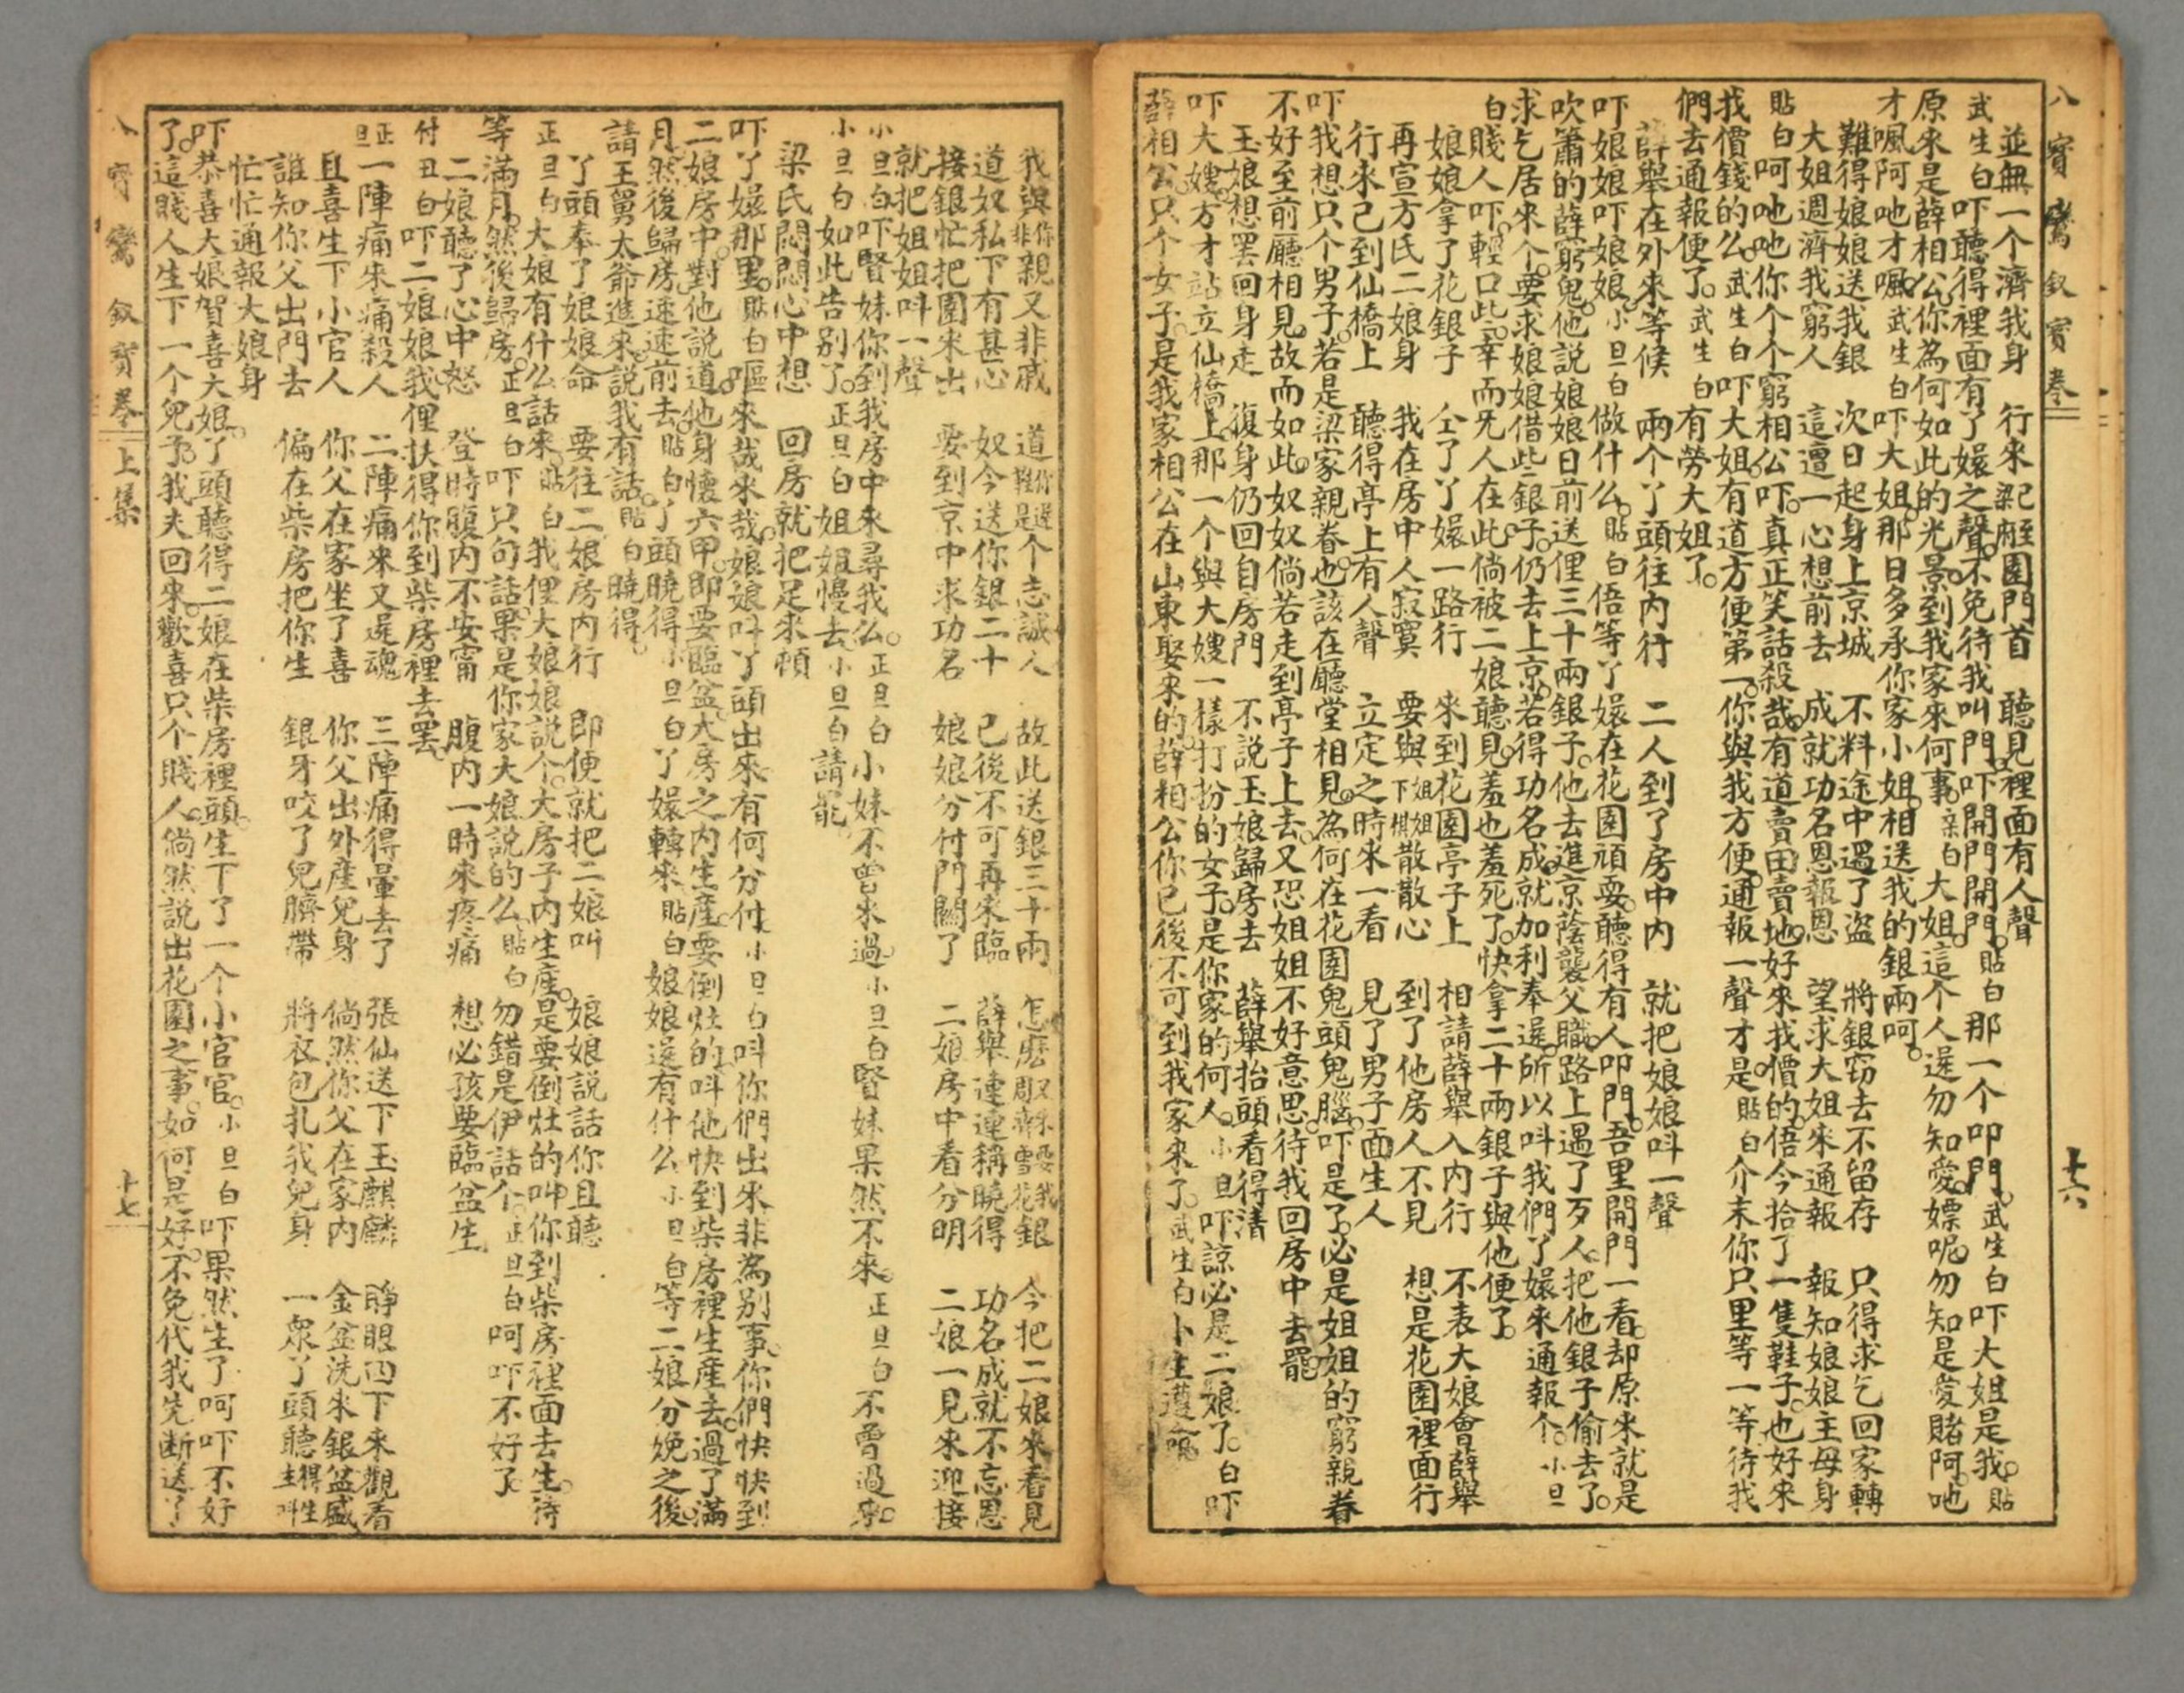 八寶鸞釵寶卷
十六
並無一个濟我身　行來已經園門首　聽見裡面有人聲
武生白吓聽得裡面有了嬛之聲。不免待我叫門。吓開門開門。貼白那一个叩門。武生白吓大姐是我。貼
原來是薛相公。你為何如此的光景。到我家來何事。亲白大姐。這个人逞勿知愛嫖呢。勿知是愛賭阿。吔
才嘁阿吔才嘁。武生白吓大姐。那日多承你家小姐。相送我的銀兩呵。
難得娘娘送我銀　次日起身上京城　不料途中遇了盜　將銀窃去不留存　只得求乞回家轉
大姐週濟我窮人　這遭一心想前去　成就功名恩報恩　望求大姐來通報　報知娘娘主母身
貼白呵吔吔你个个窮相公吓。真正笑話殺哉。有道賣田賣地。好來我僧的。倍今拾了一隻鞋子。也好來
我價錢的么。武生白吓大姐。有道方便第一。你與我方便。通報一聲才是。貼白介末你只里等一等。待我
們去通報便了。武生白有勞大姐了。
薛舉在外來等候　兩个丫頭往內行　二人到了房中內　就把娘娘叫一聲
吓娘娘吓娘娘。小旦白做什么。貼白倍等丫嬛在花園頑耍。聽得有人叩門。吾里開門一看。却原來就是
吹簫的薛窮鬼。他說娘娘日前送俚三十兩銀子。他去進京蔭襲父職。路上遇了歹人。把他銀子偷去了。
求乞居來个。要求娘娘借些銀子。仍去上京。若得功名成就。加利奉逞。所以叫我們了嬛來通報个。小旦
白賤人吓。輕口些。幸而旡人在此。倘被二娘聽見。羞也羞死了。快拿二十兩銀子與他便了。
娘娘拿了花銀子　仝了丫嬛一路行　來到花園亭子上　相請薛舉入內行　不表大娘會薛舉
再宣方氏二娘身　我在房中人寂寞　要與姐姐散散心　到了他房人不見　想是花園裡面行
行來己到仙橋上　聽得亭上有人聲　立定之時來一看　見了男子面生人
吓我想只个男子。若是梁家親眷。也該在廳堂相見。為何在花園鬼頭鬼腦。吓是了。必是姐姐的窮親眷
不好至前廳相見。故而如此。奴奴倘若走到亭子上去。又恐姐姐不好意思。待我回房中去罷。
玉娘想罷回身走　復身仍回自房門　不說玉娘歸房去　薛舉抬頭看得清
吓大嫂。方才站立仙橋上。那一个與大嫂一樣打扮的女子。是你家的何人。小旦吓諒必是二娘了。白吓
薛相公。只个女子。是我家相公在山東娶來的。薛相公你已後不可到我家來了。武生白卜生遵命。
我與你非親又非戚　道你逞是个志誠人　故此送銀三十兩　今把二娘來看見
道奴私下有甚心　奴今送你銀二十　已後不可再來臨　薛舉連連稱曉得　功名成就不忘恩
接銀忙把園來出　要到京中求功名　娘娘分付門關了　二娘房中看分明　二娘一見來迎接
就把姐姐叫一聲
小旦白吓賢妹你到我房中來尋我么。正旦白小妹不曾來過。小旦白賢妹果然不來。正旦白不曾過來。
小旦白如此告別了。正旦白姐姐慢去。小旦白請罷。
梁氏悶悶心中想　回房就把足來頓
吓丫嬛那里。貼白嘔來哉來哉。娘娘叫丫頭出來。有何分付。小旦白叫你們出來。非為別事。你們快快到
二娘房中。對他說道。他身懷六甲。即要臨盆。大房之內生產。要倒灶的。叫他快到柴房裡生產去。過了滿
月。然後歸房。速速前去。貼白丫頭曉得。小旦白丫嬛轉來。貼白娘娘逞有什么。小旦白等二娘分娩之後。
請王舅太爺進來。說我有話。貼白曉得。
丫頭奉了娘娘命　要往二娘房內行　即便就把二娘叫　娘娘說話你且聽
正旦白大娘有什么話來。貼白我俚大娘娘說个。大房子內生產。是要倒灶的。叫你到柴房裡面去生。待
等滿月。然後歸房。正旦白吓。只句話果是你家大娘說的么。貼白勿錯是伊話个。正旦白呵吓不好了。
二娘聽了心中怒　登時腹內不安甯　腹內一時來疼痛　想必孩要臨盆生
付丑白吓二娘娘。我俚扶得你到柴房裡去罷。
正旦一陣痛來痛殺人　二陣痛來又逞魂　三陣痛得暈去了　張仙送下玉麒麟　睜眼四下來觀看
且喜生下小官人　你父在家坐了喜　你父出外產兒身　倘然你父在家內　金盆洗來銀盆盛
誰知你父出門去　偏在柴房把你生　銀牙咬了兒臍帶　將衣包扎我兒身　一眾丫頭聽得生
忙忙通報大娘身
吓恭喜大娘賀喜大娘。丫頭聽得二娘在柴房裡頭。生下了一个小官官。小旦白吓果然生了。呵吓不好
了。這賤人生下一个兒子。我夫回來。歡喜只个賤人。倘然說出花園之事。如何是好。不免代我先断送了
八寶鸞釵寶卷上集
十七